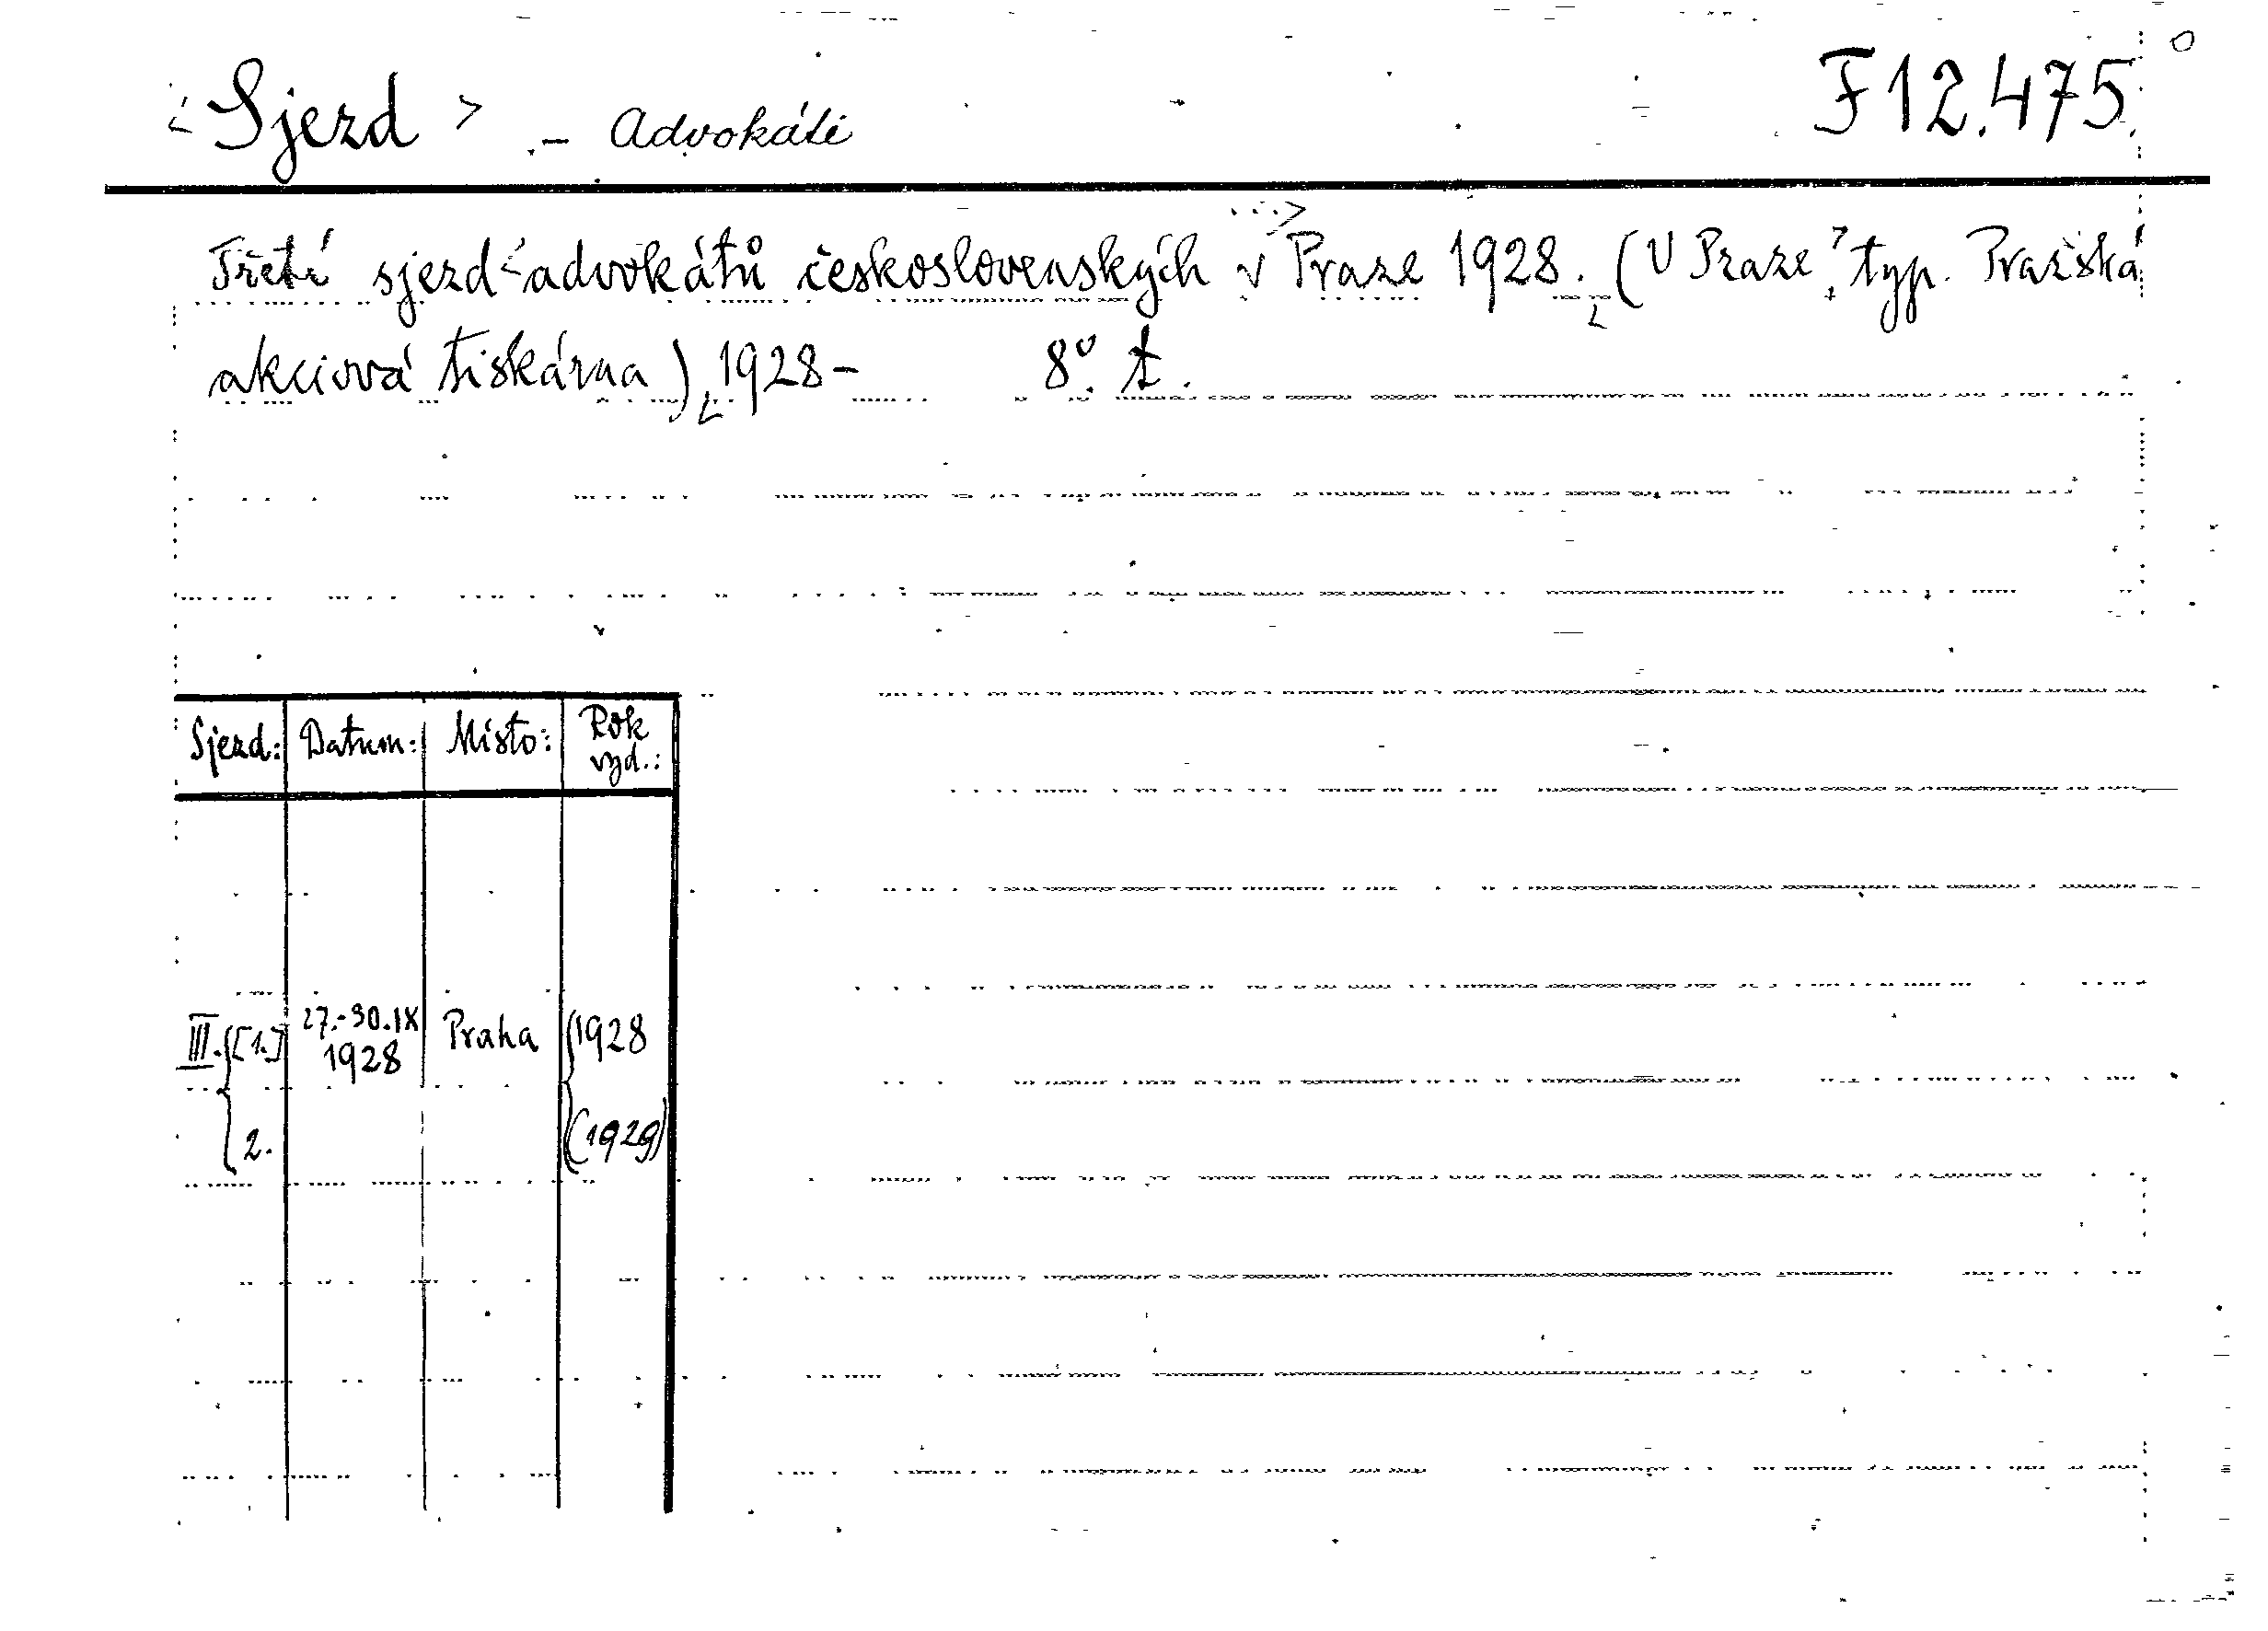 <Sjezd> - Advokáti F 12.475
Třetí sjezd <advokátů československých> v Praze 1928. (V Praze, typ. Pražská
akciová tiskárna), 1928- 8°. t.
Sjezd: Datum: Místo: Rok vyd.:
III. [1.] 27.-30.IX 1928 Praha 1928
2. (1929)